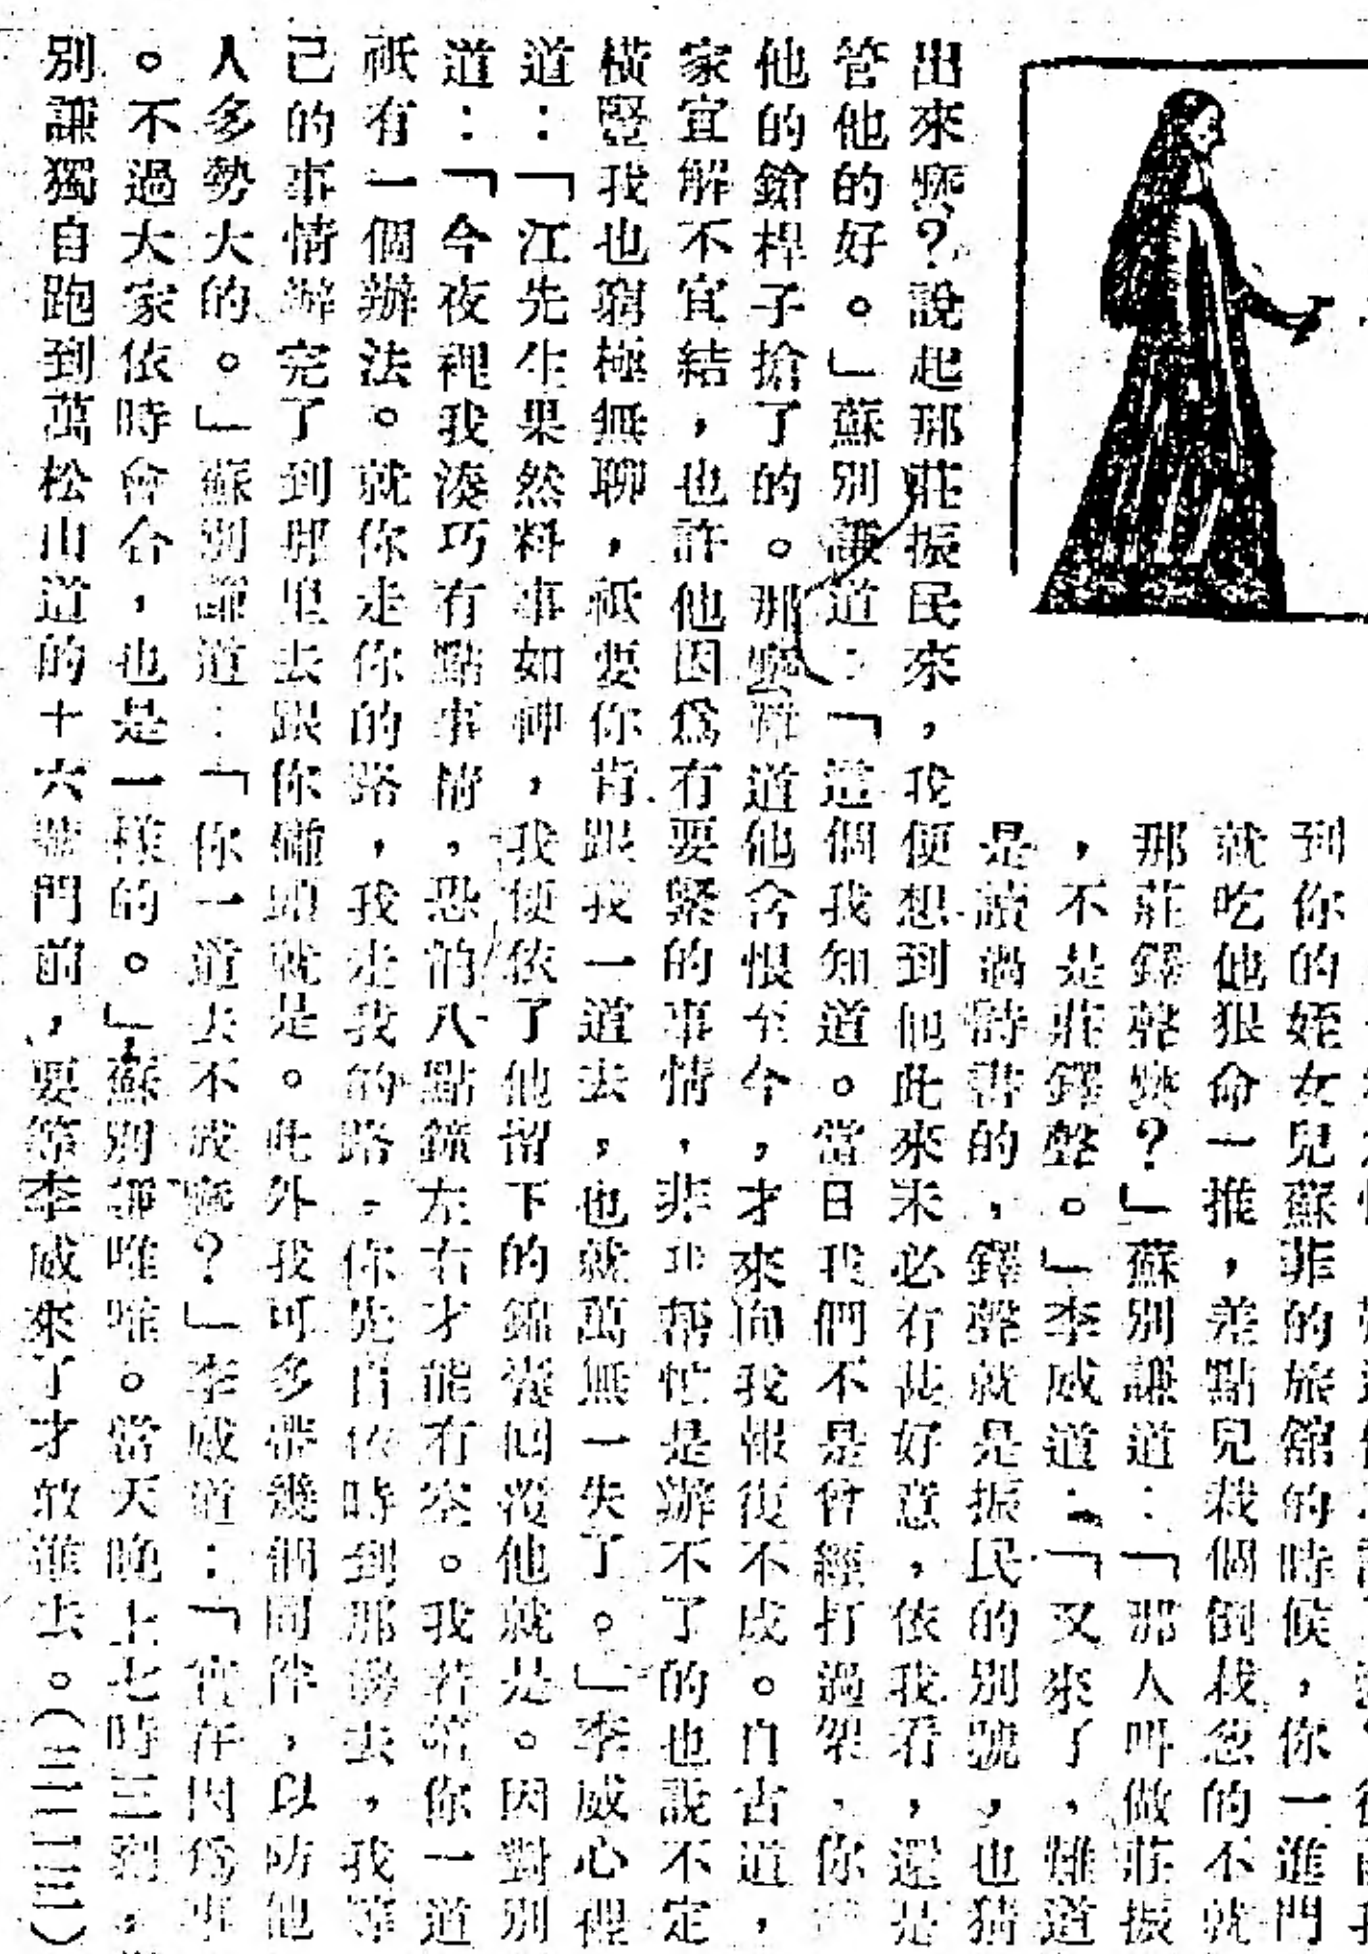 到你的姪女兒蘇菲的旅館的時候，你一進門
就吃他狠命一推，差點兒栽個倒栽忽的不就
那莊鐸聲麽？」蘇別謙道：「那人叫做莊振
，不是莊鐸聲。」李威道：「又來了，難道
是讀過詩書的，鐸聲就是振民的別號，也猜
出來麽？說起那莊振民來，我便想到他此來未必有甚好意，依我看，還是
管他的好。」蘇別謙道：「這個我知道。當日我們不是曾經打過架，你
他的鎗桿子搶了的。那麽難道他含恨至今，才來向我報復不成。自古道，
家宜解不宜結，也許他因爲有要緊的事情，非我幫忙是辦不了的也說不定
橫豎我也窮極無聊，祇要你肯跟我一道去，也就萬無一失了。」李威心裡
道：「江先生果然料事如神，我便依了他留下的錦囊回覆他就是。因對別
道：「今夜裡我湊巧有點事情，恐怕八點鐘左右才能有空。我若等你一道
祇有一個辦法。就你走你的路，我走我的路，你先自依時到那邊去，我等
己的事情辦完了到那里去跟你碰頭就是。此外我可多帶幾個同伴，以防他
人多勢大的。」蘇別謙道：「你一道去不成麽？」李威道：「實在因爲事
。不過大家依時會合，也是一樣的。」蘇別謙唯唯。當天晚上七時三刻，
別謙獨自跑到萬松山道的十六號門前，要等李威來了才敢進去。（三二三）